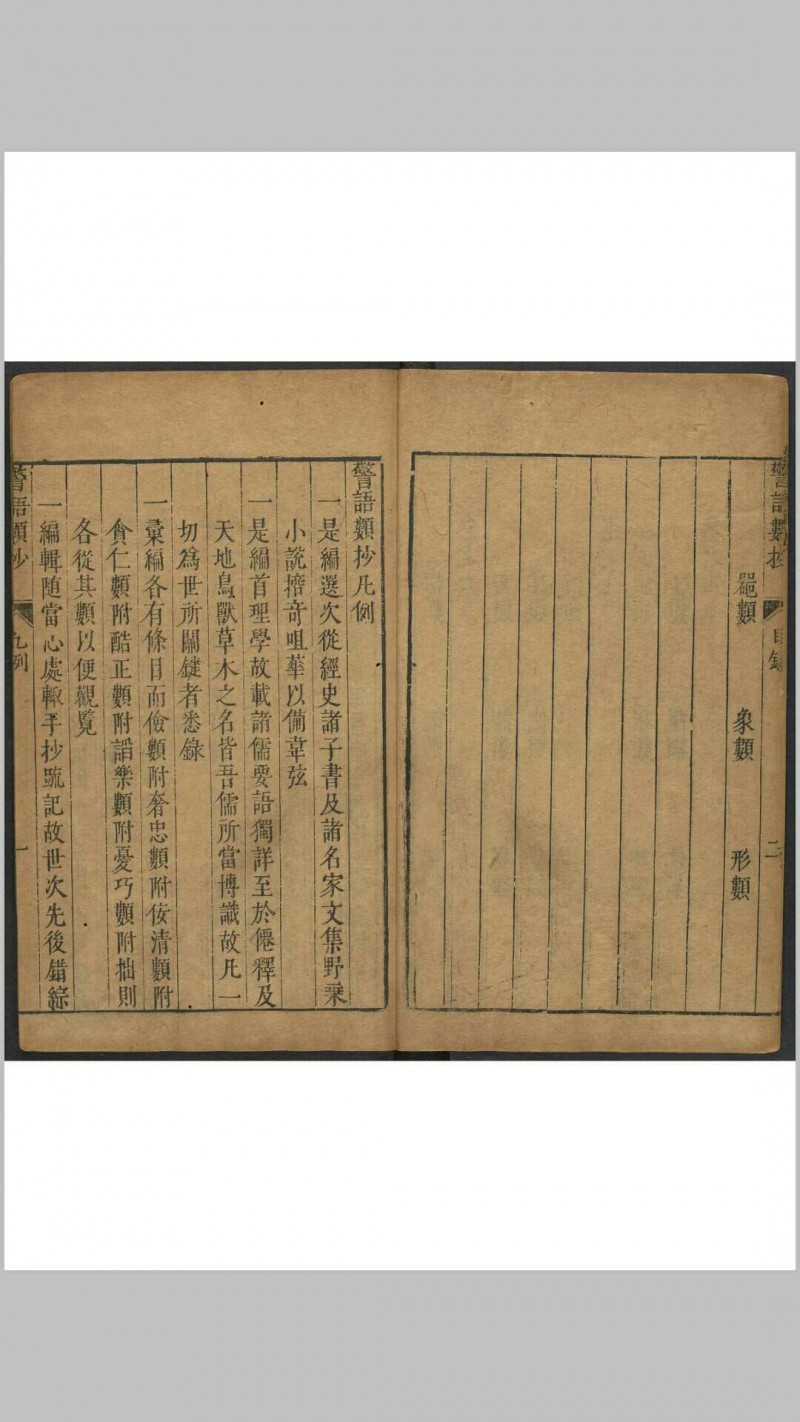 警語類抄
目錄
二
葩類 象類 形類
警語類抄凡例
一是編選次從經史諸子書及諸名家文集野乘
小說擷奇咀華以備韋弦
一是編首理學故載諸儒要語獨詳至於僊釋及
天地鳥獸草木之名皆吾儒所當博識故凡一
切為世所關鍵者悉錄
一彙編各有條目而儉類附奢忠類附佞清類附
貪仁類附酷正類附謟樂類附憂巧類附拙則
各從其類以便觀覧
一編輯随當心處輙手抄䟽記故世次先後錯綜
警語類抄
凡例
一